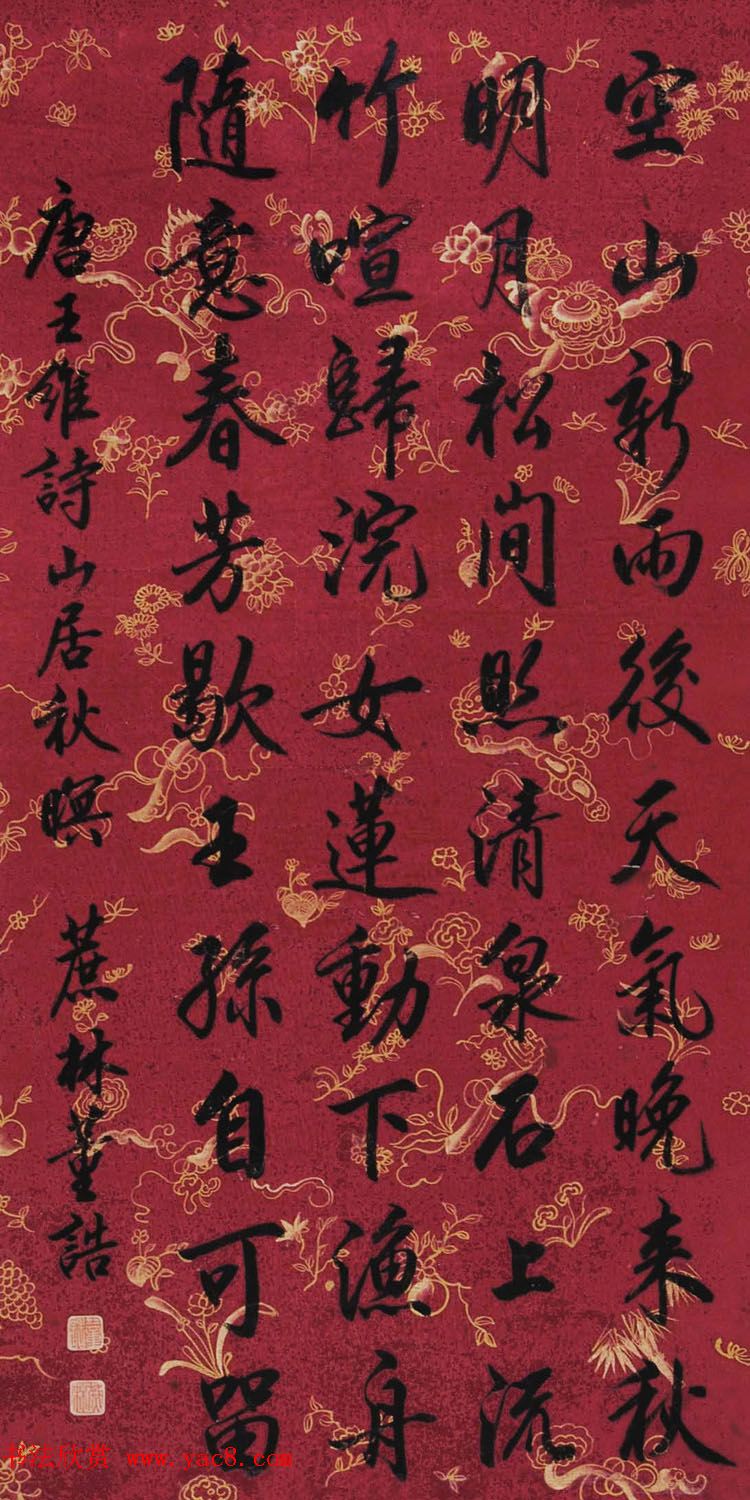 空山新雨後天氣晚来秋
明月松澗照清泉石上流
竹喧歸浣女蓮動下漁舟
隨意春芳歇王孫自可留
唐王維詩山居秋暝 蔗林董誥
书法欣赏 www.yac8.com